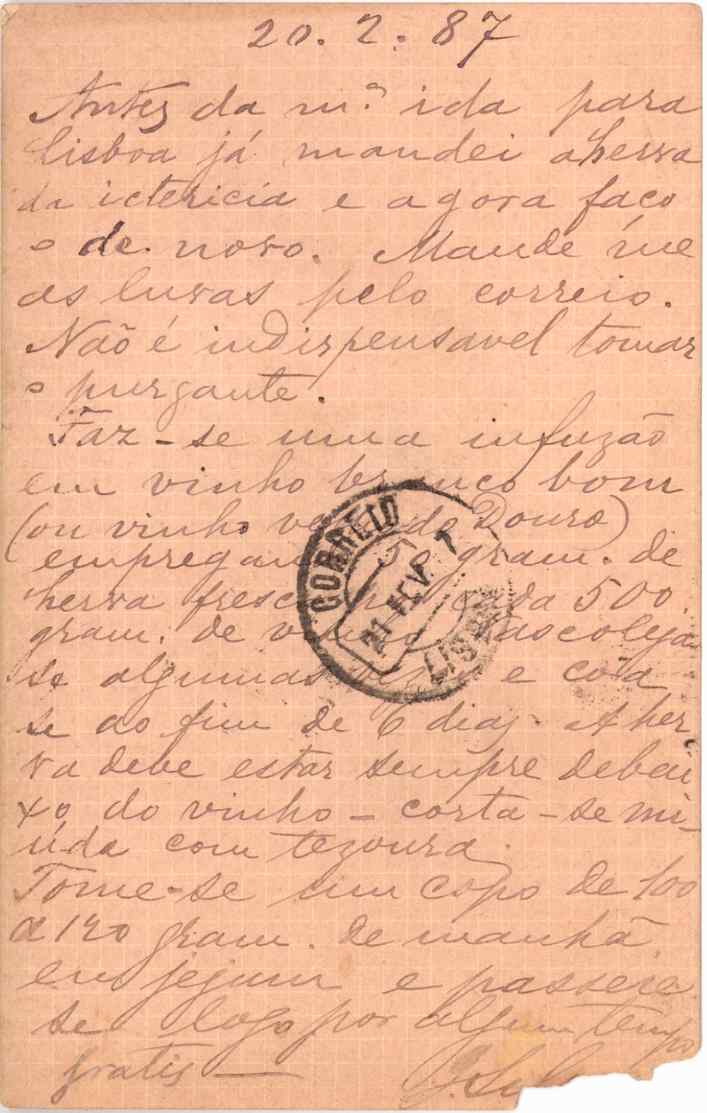 20.2.87
Antes da m.ª ida para
Lisboa já mandei a herva
da ictericia e agora faço
o de novo. Mande me
as luvas pelo correio.
Não é indispensavel tomar
o purgante.
Faz-se uma infuzão
em vinho branco bom
(ou vinho do Douro)
empregan 50 gram. de
herva fresc cada 500
gram. de vascoleja
se algumas e cóa
se ao fim de 6 dias. A her
va debe estar sempre debai
xo do vinho - corta-se mi-
úda com tezoura.
Tome-se um copo de 100
a 120 gram. de manhã
em jejum e passeie
se logo por algum tempo
gratis —
CORREIO
21 FEV 7
LISBOA